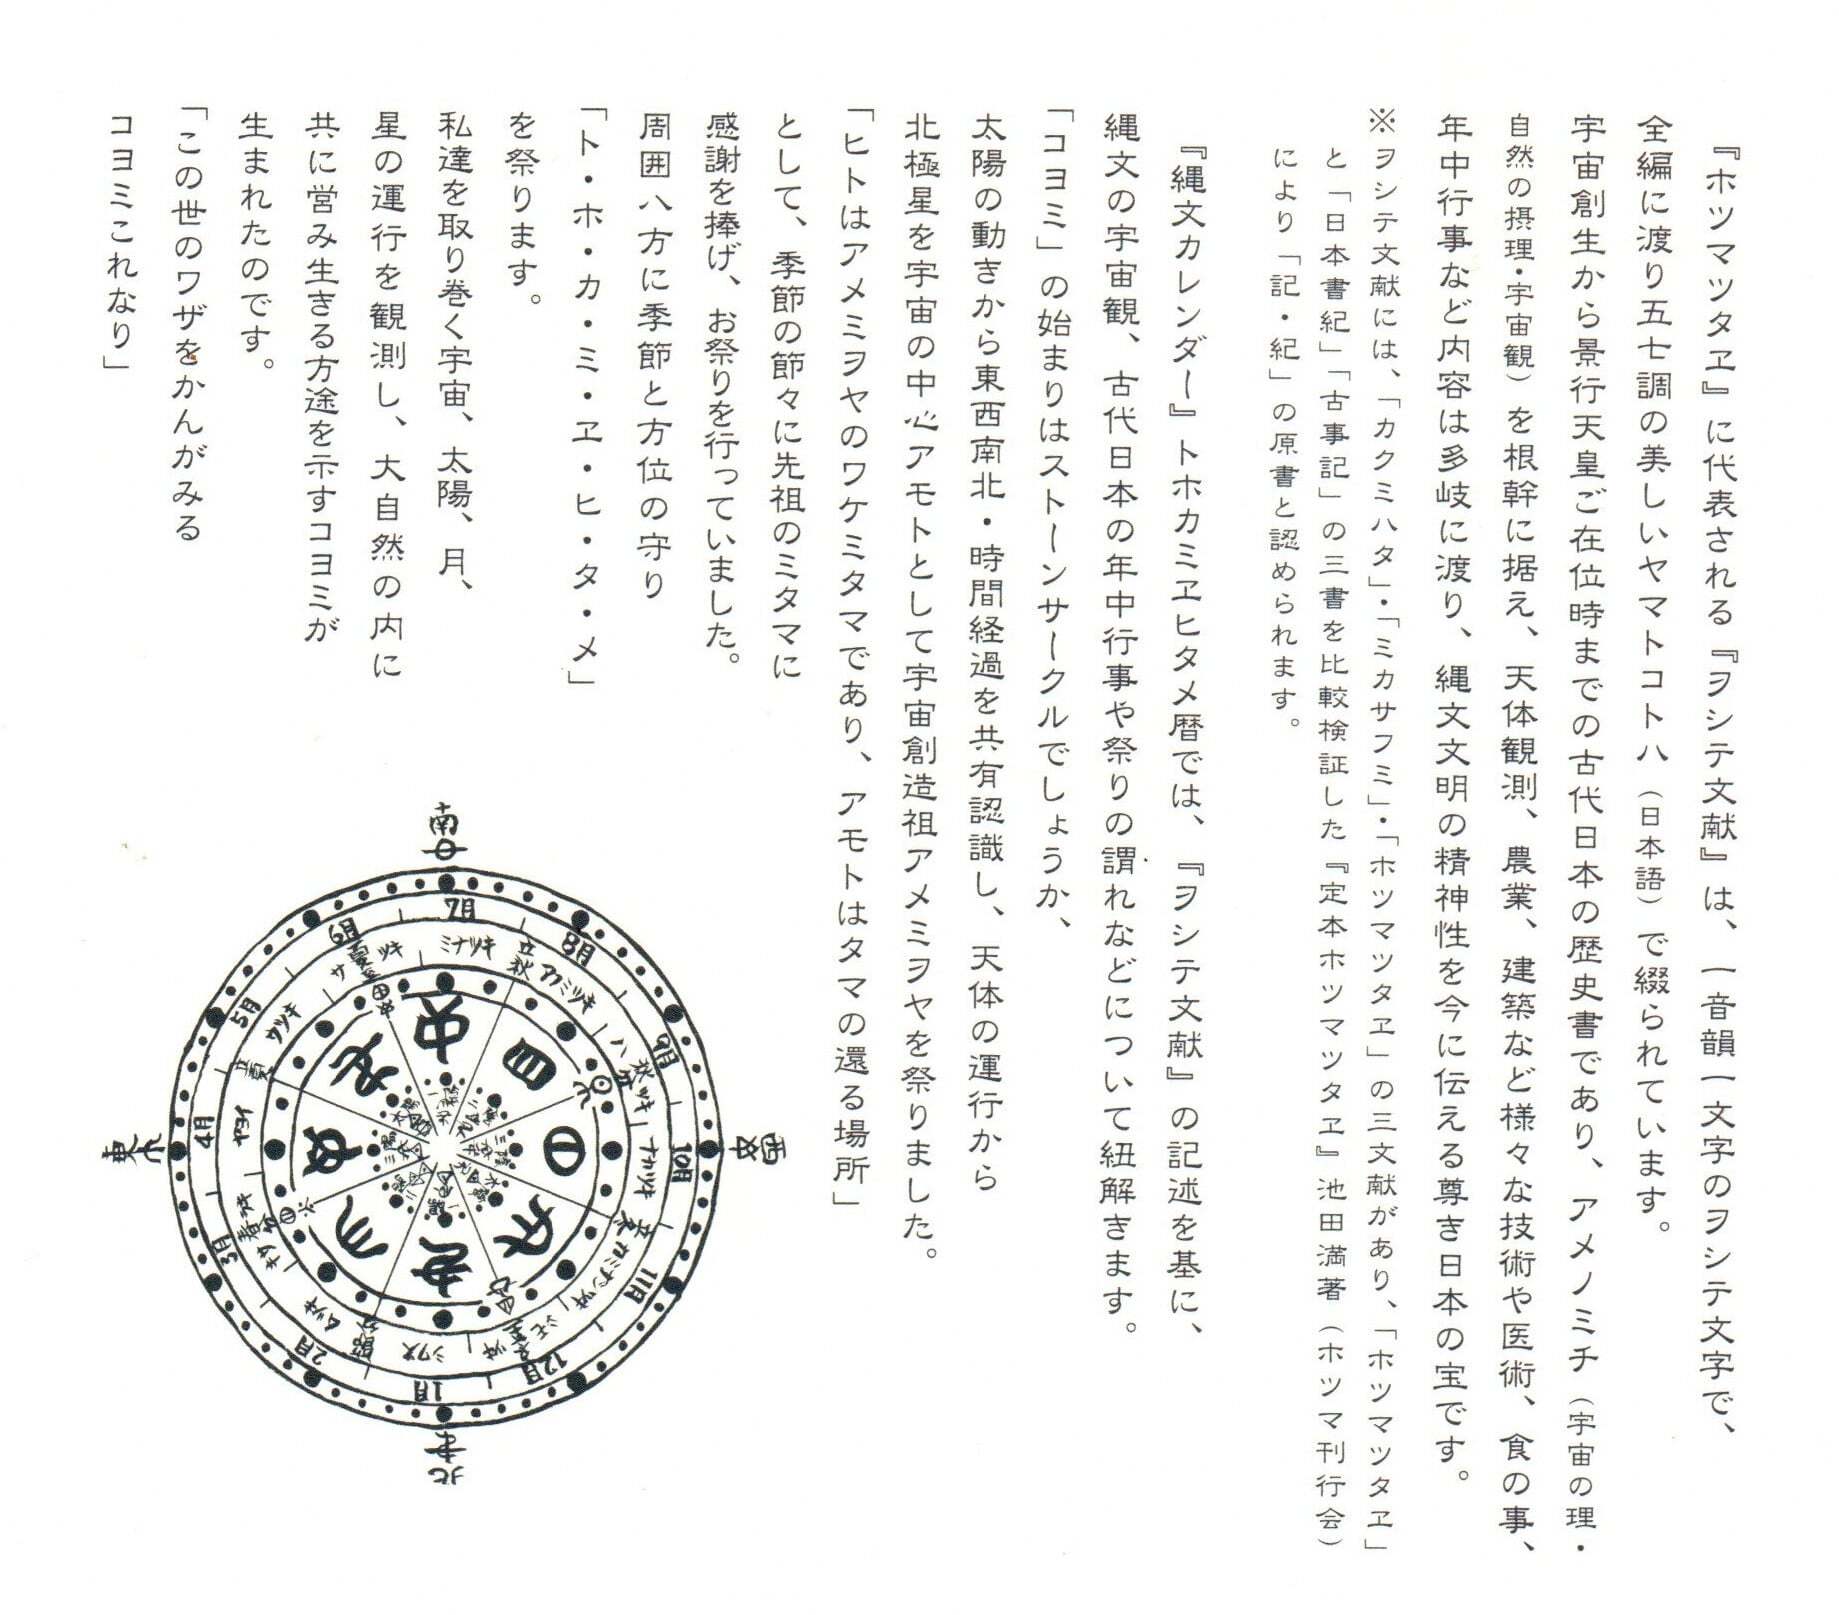 『ホツマツタヱ』に代表される『ヲシテ文献』は、一音韻一文字のヲシテ文字で、
全編に渡り五七調の美しいヤマトコトハ（日本語）で綴られています。
宇宙創生から景行天皇ご在位時までの古代日本の歴史書であり、アメノミチ（宇宙の理・
自然の摂理・宇宙観）を根幹に据え、天体観測、農業、建築など様々な技術や医術、食の事、
年中行事など内容は多岐に渡り、縄文文明の精神性を今に伝える尊き日本の宝です。
※ヲシテ文献には、「カクミハタ」・「ミカサフミ」・「ホツマツタヱ」の三文献があり、「ホツマツタヱ」
と「日本書紀」「古事記」の三書を比較検証した『定本ホツマツタヱ』池田満著（ホツマ刊行会）
により「記・紀」の原書と認められます。
『縄文カレンダー』トホカミヱヒタメ暦では、『ヲシテ文献』の記述を基に、
縄文の宇宙観、古代日本の年中行事や祭りの謂れなどについて紐解きます。
「コヨミ」の始まりはストーンサークルでしょうか、
太陽の動きから東西南北・時間経過を共有認識し、天体の運行から
北極星を宇宙の中心アモトとして宇宙創造祖アメミヲヤを祭りました。
「ヒトはアメミヲヤのワケミタマであり、アモトはタマの還る場所」
として、季節の節々に先祖のミタマに
感謝を捧げ、お祭りを行っていました。
周囲八方に季節と方位の守り
「ト・ホ・カ・ミ・ヱ・ヒ・タ・メ」
を祭ります。
私達を取り巻く宇宙、太陽、月、
星の運行を観測し、大自然の内に
共に営み生きる方途を示すコヨミが
生まれたのです。
「この世のワザをかんがみる
コヨミこれなり」
南
7月
8月
9月
10月
11月
12月
1月
2月
3月
4月
5月
6月
ミナツキ
立秋
ハツキ
秋分
ナカツキ
立冬
冬至
シワス
ムツキ
春分
ヤヨイ
立夏
ウツキ
サツキ
西
北
東